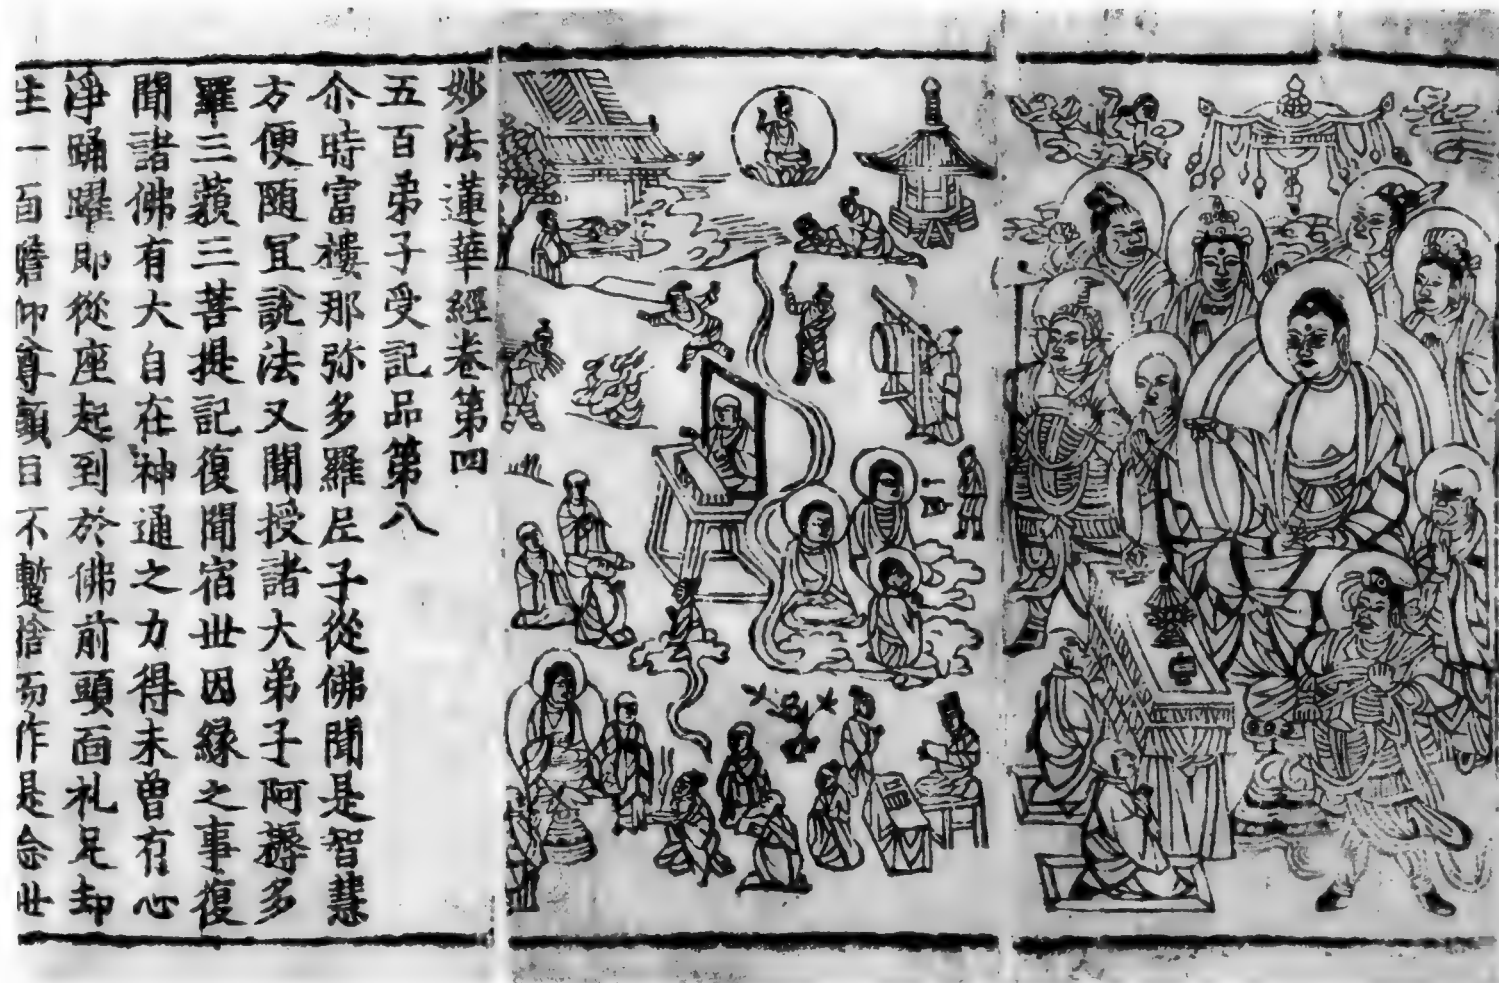 妙法蓮華經卷第四
五百弟子受記品第八
尒時富樓那弥多羅尼子從佛聞是智慧
方便随宜說法又聞授諸大弟子阿耨多
羅三藐三菩提記復聞宿世因緣之事復
聞諸佛有大自在神通之力得未曾有心
淨踊躍即從座起到於佛前頭面礼足却
住一面瞻仰尊顔目不蹔捨而作是念世